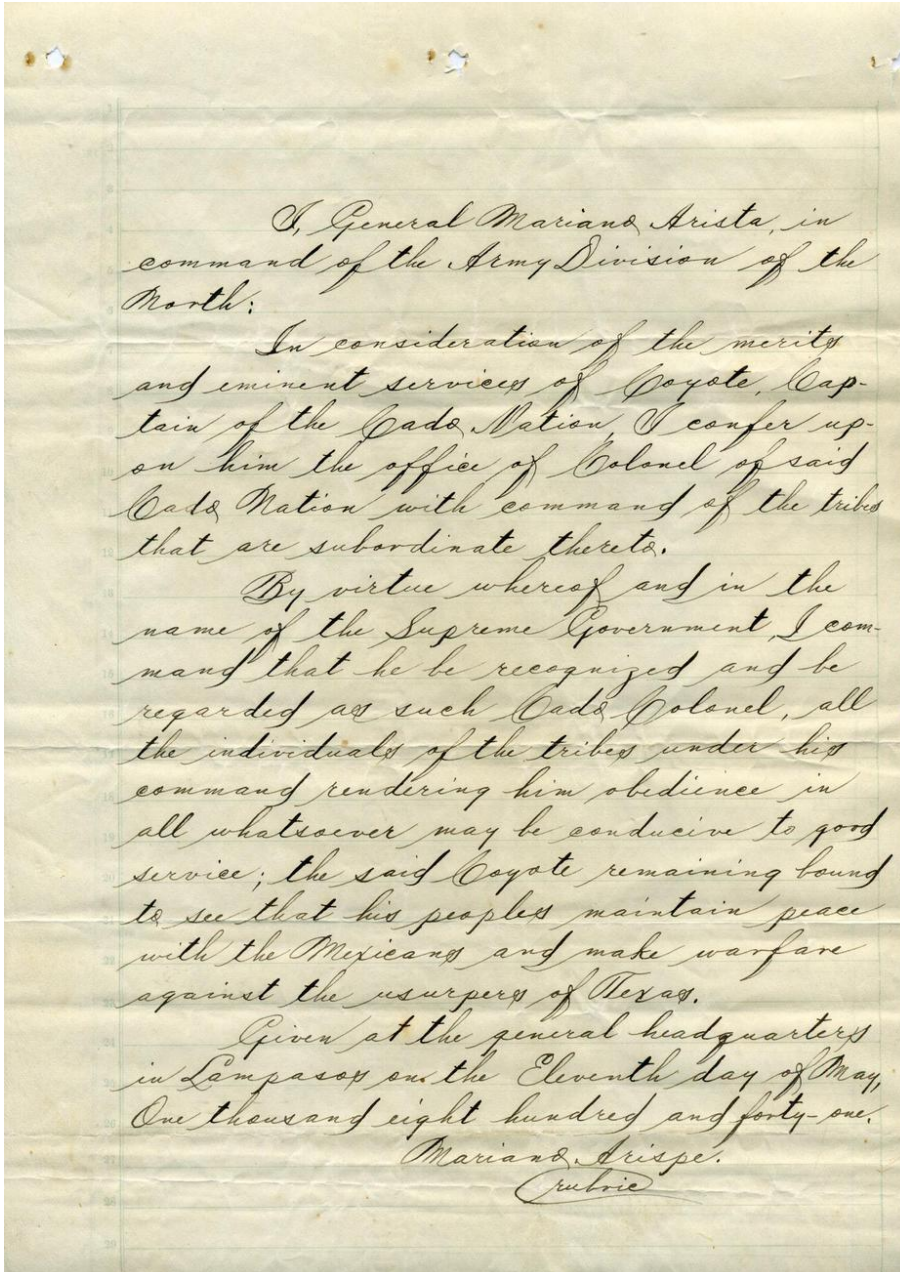 I, General Mariano Arista, in
command of the Army Division of the
North:
In consideration of the merits
and eminent services of Coyote, Cap-
tain of the Cado Nation, I confer up-
on him the office of Colonel of said
Cado Nation with command of the tribes
that are subordinate thereto.
By virtue whereof and in the
name of the Supreme Government, I com-
mand that he be recognized and be
regarded as such Cado Colonel, all
the individuals of the tribes under his
command rendering him obedience in
all whatsoever may be conducive to good
service; the said Coyote remaining bound
to see that his peoples maintain peace
with the Mexicans and make warfare
against the usurpers of Texas.
Given at the general headquarters
in Lampasos on the Eleventh day of May,
One thousand eight hundred and forty-one.
Mariano Arispe.
rubric